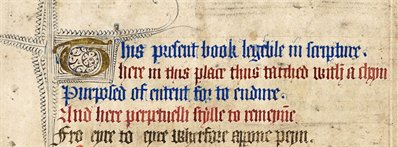 This present book legeble in scripture.
here in this place thus tacched with a cheyn
Purposed of entent for to endure.
And here perpetuelli stylle to remeyne
Fro eyre to eyre wherfore appone peyn.